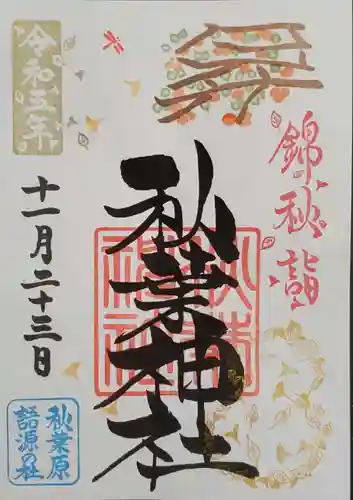 錦秋詣
秋葉神社
令和五年
十一月二十三日
秋葉原
語源の社